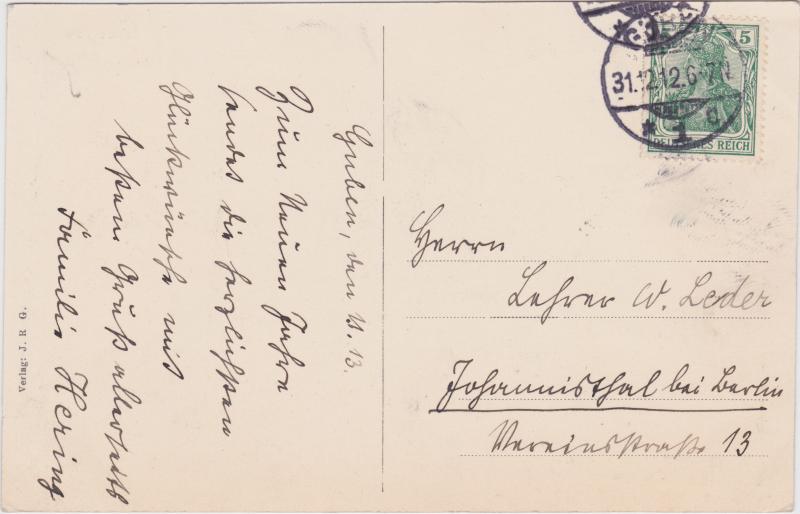 Guben, den 1.1.13.
Zum Neuen Jahre
sendet die herzlichsten
Glückwünsche mit
bestem Gruß allerseits
Familie Hering
Verlag: J. R G.
5
DEUTSCHES REICH
31.12.12.6-7N
* 1 d.
Herrn
Lehrer W. Leder
Johannisthal bei Berlin
Vereinsstraße 13